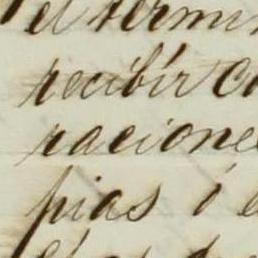 el termin
recibir c
racione
pias ó e